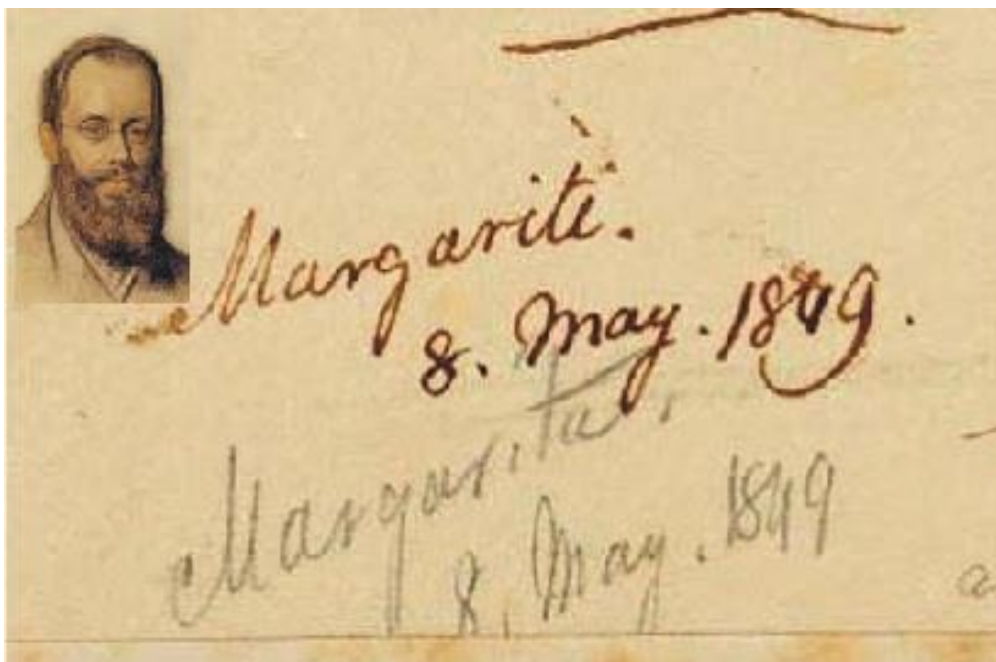 Margariti.
8. May. 1849.
Margariti.
8. May. 1849